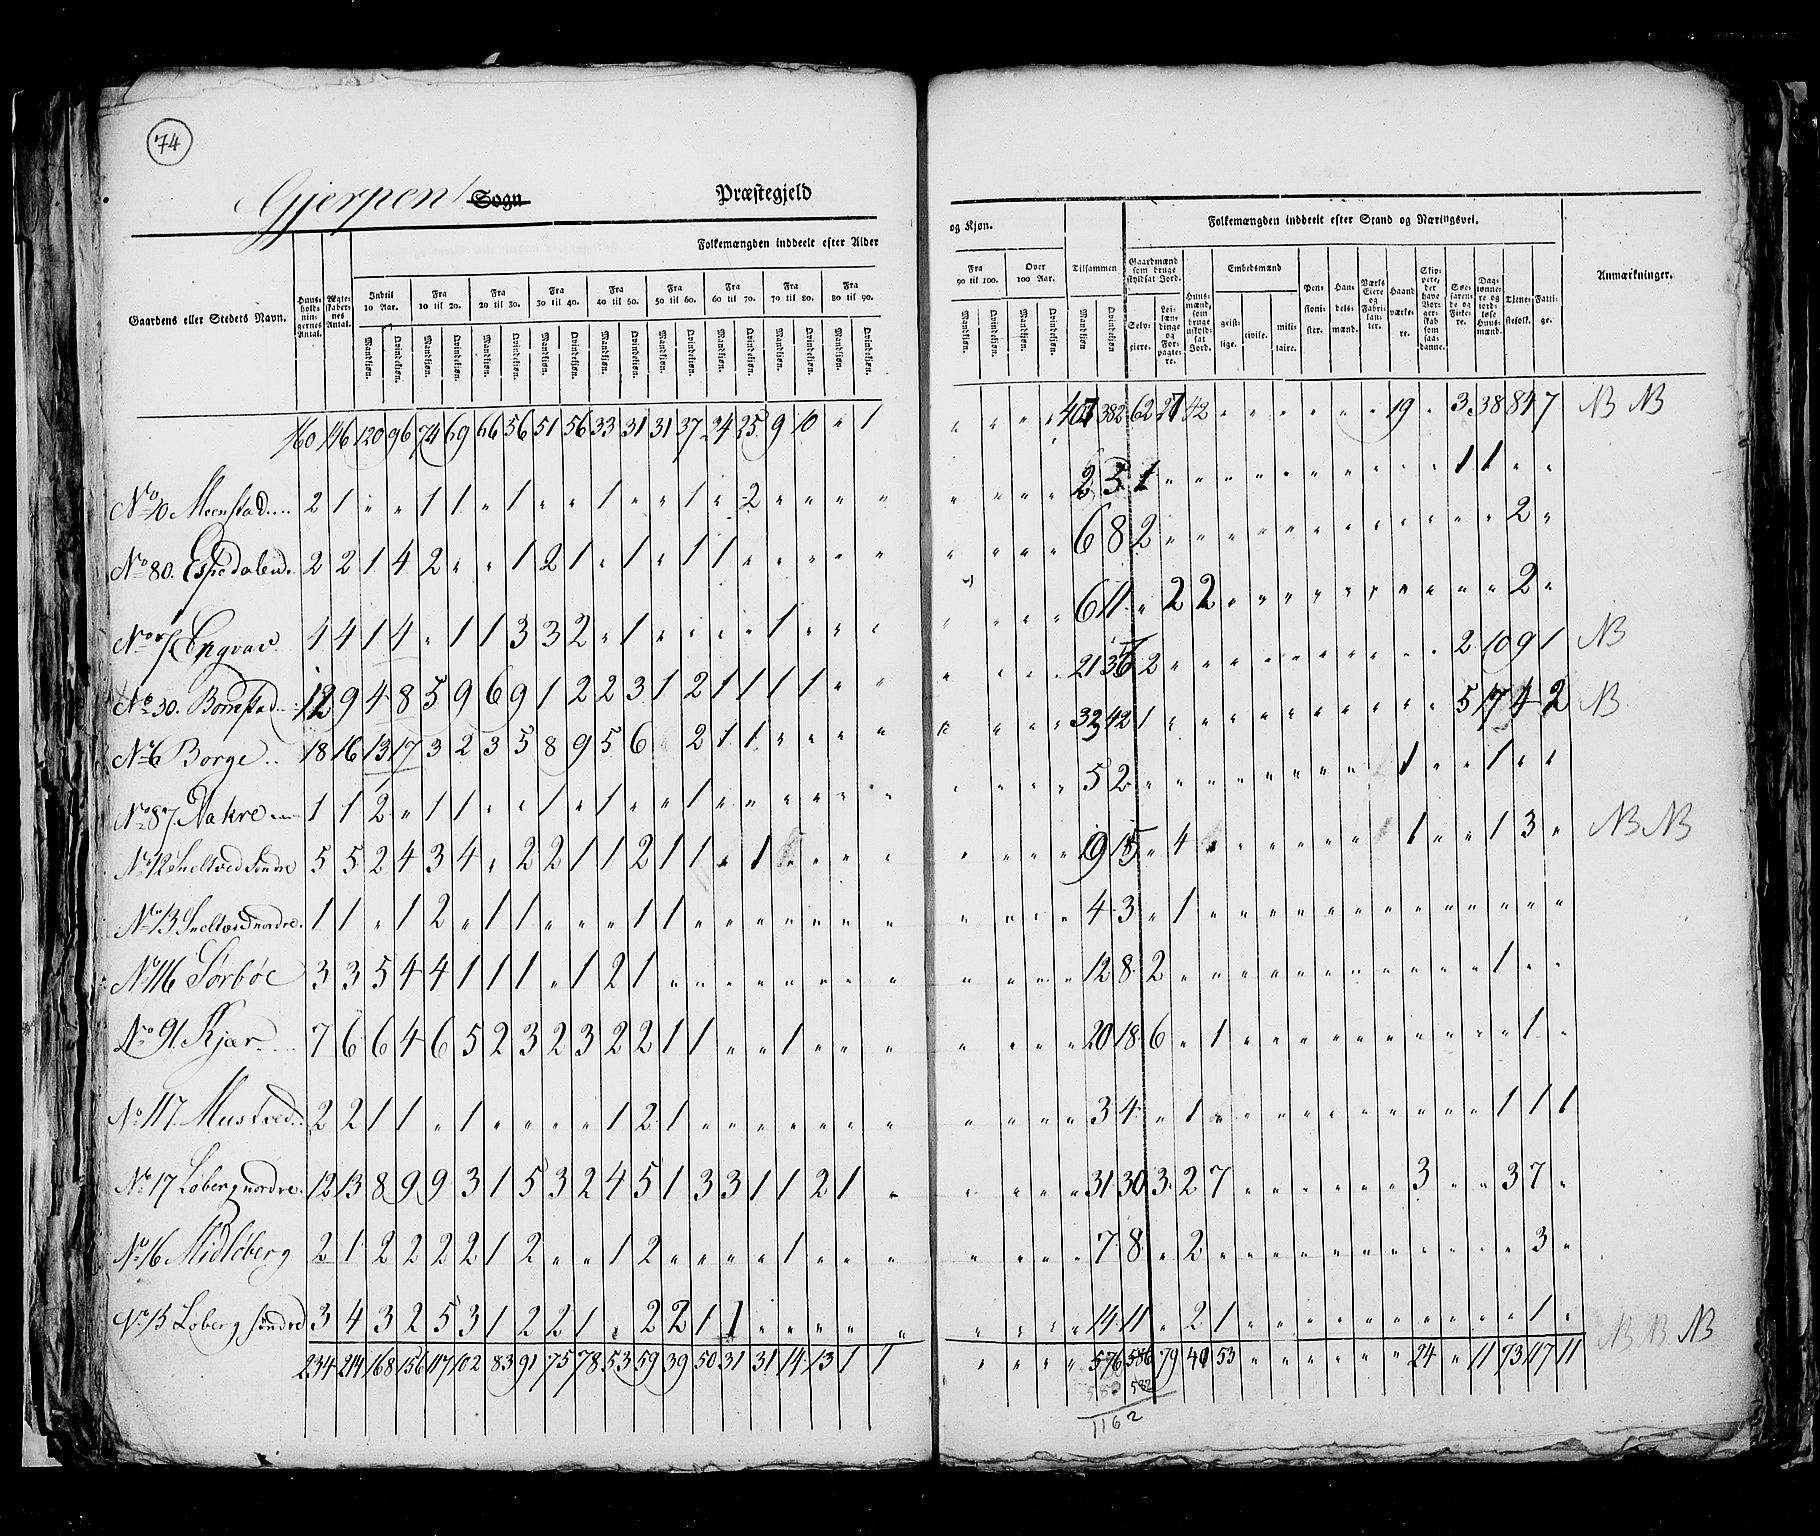 74
Gjerpen Sogn Præstegjeld
Gaardens eller Steders Navn. Huusholdningernes Antal. Ægteskabernes Antal. Folkemængden inddeelt efter Alder og Kjøn. Tilsammen Folkemængden inddeelt efter Stand og Næringsvei. Anmærkninger.
Indtil 10 Aar. Fra 10 til 20. Fra 20 til 30. Fra 30 til 40. Fra 40 til 50. Fra 50 til 60. Fra 60 til 70. Fra 70 til 80. Fra 80 til 90. Fra 90 til 100. Over 100 Aar.
Mandkiøn. Qvindekiøn.
Gaardmænd som bruge skyldsat Jord. Selveiere. Leilændinge og Forpagtere. Huusmænd, som bruge uskyldsat Jord. Embedsmænd geistlige. civile. militaire. Pensionister. Handelsmænd. Værks Eiere og Fabrikanter. Haandværkere. Skippere, der have Borgerskab som saadanne. Søefarende og Fiskere. Dagslønnere og jordløse Huusmænd. Tjenestefolk. Fattige.
160 146 120 96 74 69 66 56 51 56 33 31 31 37 24 25 9 10 " 1 " " " " 403 382 62 27 42 " " " " " " 19 " 3 38 84 7 NB NB
2 1 " " 1 1 " 1 " " 1 " " 1 " 2 " " " " " " " " 2 5 1 " " " " " " " " " " 1 1 " "
No 80. Espedalen 2 2 1 4 2 " " 1 2 1 " 1 " 1 1 " " " " " " " " " 6 8 2 " " " " " " " " " " " " 2 "
4 4 1 4 " 1 1 3 3 2 " 1 " " " " 1 " " " " " " " 6 11 " 2 2 " " " " " " " " " " 2 "
No 30. 12 9 4 8 5 9 6 9 1 2 2 3 1 2 1 1 1 1 " " " " " " 21 35 2 " " " " " " " " " " 2 10 9 1 NB
No 6 Borge 18 16 13 17 3 2 3 5 8 9 5 6 " 2 1 1 " " " " " " " 32 42 1 " " " " " " " " " " 5 17 4 2 NB
No 87. Aakre 1 1 2 " 1 1 " " 1 " 1 " " 1 " " " " " " " " " " 5 2 " " " " " " " " " 1 " " 1 " "
No 12 Sneltved Søndre 5 5 2 4 3 4 " 2 2 1 1 2 1 1 " 1 " " " " " " " " 9 15 " 4 " " " " " " " 1 " " 1 3 " NB NB
No 13 Sneltvednordre. 1 1 " 1 2 " 1 1 " " " 1 1 " " " " " " " " " " " 4 3 " 1 " " " " " " " " " " " " "
No 116 Sørbøe 3 3 5 4 4 1 1 1 " 1 2 1 " " " " " " " " " " " " 12 8 2 " " " " " " " " " " " 1 " "
No 91. Kjær 7 6 6 4 6 5 2 3 2 3 2 2 1 1 " " 1 " " " " " " " 20 18 6 " 1 " " " " " " " " " " 1 "
No 117. Mustved 2 2 1 1 " 1 " " " " 1 2 1 " " " " " " " " " " " 3 4 " 1 " " " " " " " " " " 1 1 1
No 17 Løberg nordre. 12 13 8 9 9 3 1 5 3 2 4 5 1 3 3 1 1 2 1 " " " " " 31 30 3 2 7 " " " " " " 3 " " 3 7 "
No 16 Midløberg 2 1 2 2 2 2 1 2 " " 1 2 " " " " 1 " " " " " " " 7 8 " 2 " " " " " " " " " " " 3 "
No 15 Løberg søndre 3 4 3 2 5 3 1 2 2 1 " 2 2 1 1 " " " " " " " " " 14 11 " 2 1 " " " " " " " " " " 1 "
234 214 168 156 117 102 83 91 75 78 53 59 39 50 31 31 14 13 1 1 " " " " 576 586 79 40 53 " " " " " " 24 " 11 73 117 11 NB NB NB
580 582
1162